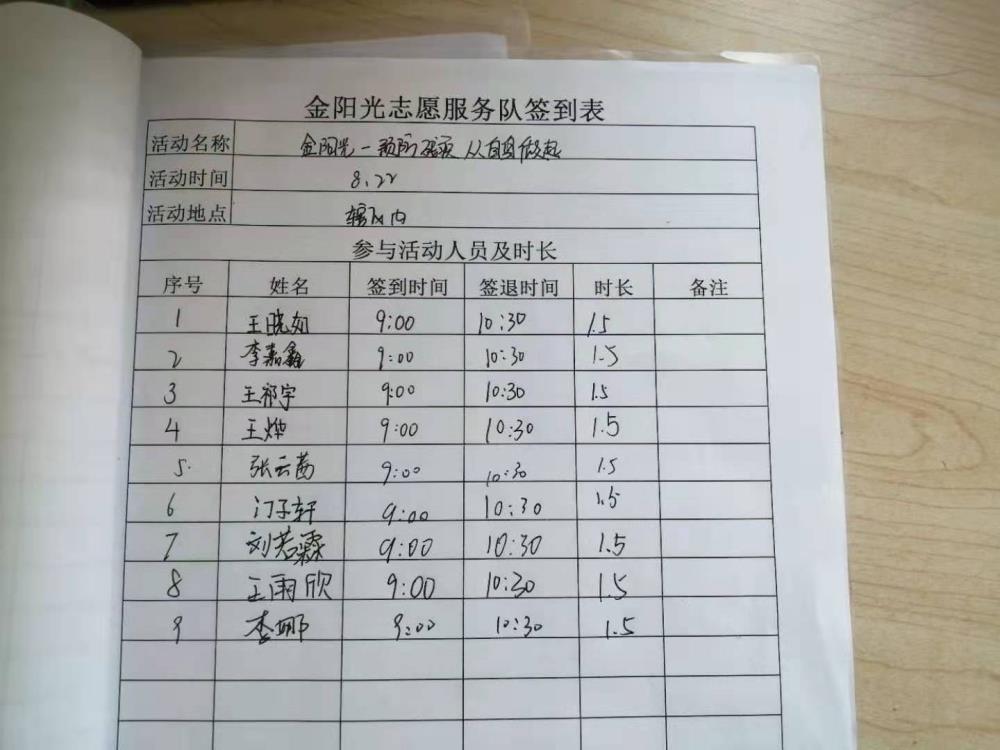 金阳光志愿服务队签到表
活动名称 金阳光一预防 从自身做起
活动时间 8.22
活动地点 辖区内
参与活动人员及时长
序号 姓名 签到时间 签退时间 时长 备注
1 王晓如 9:00 10:30 1.5
2 李嘉鑫 9:00 10:30 1.5
3 王祁宇 9:00 10:30 1.5
4 王烨 9:00 10:30 1.5
5. 张云茜 9:00 10:30 1.5
6 门子轩 9:00 10:30 1.5
7 刘若霖 9:00 10:30 1.5
8 王雨欣 9:00 10:30 1.5
9 李娜 9:00 10:30 1.5